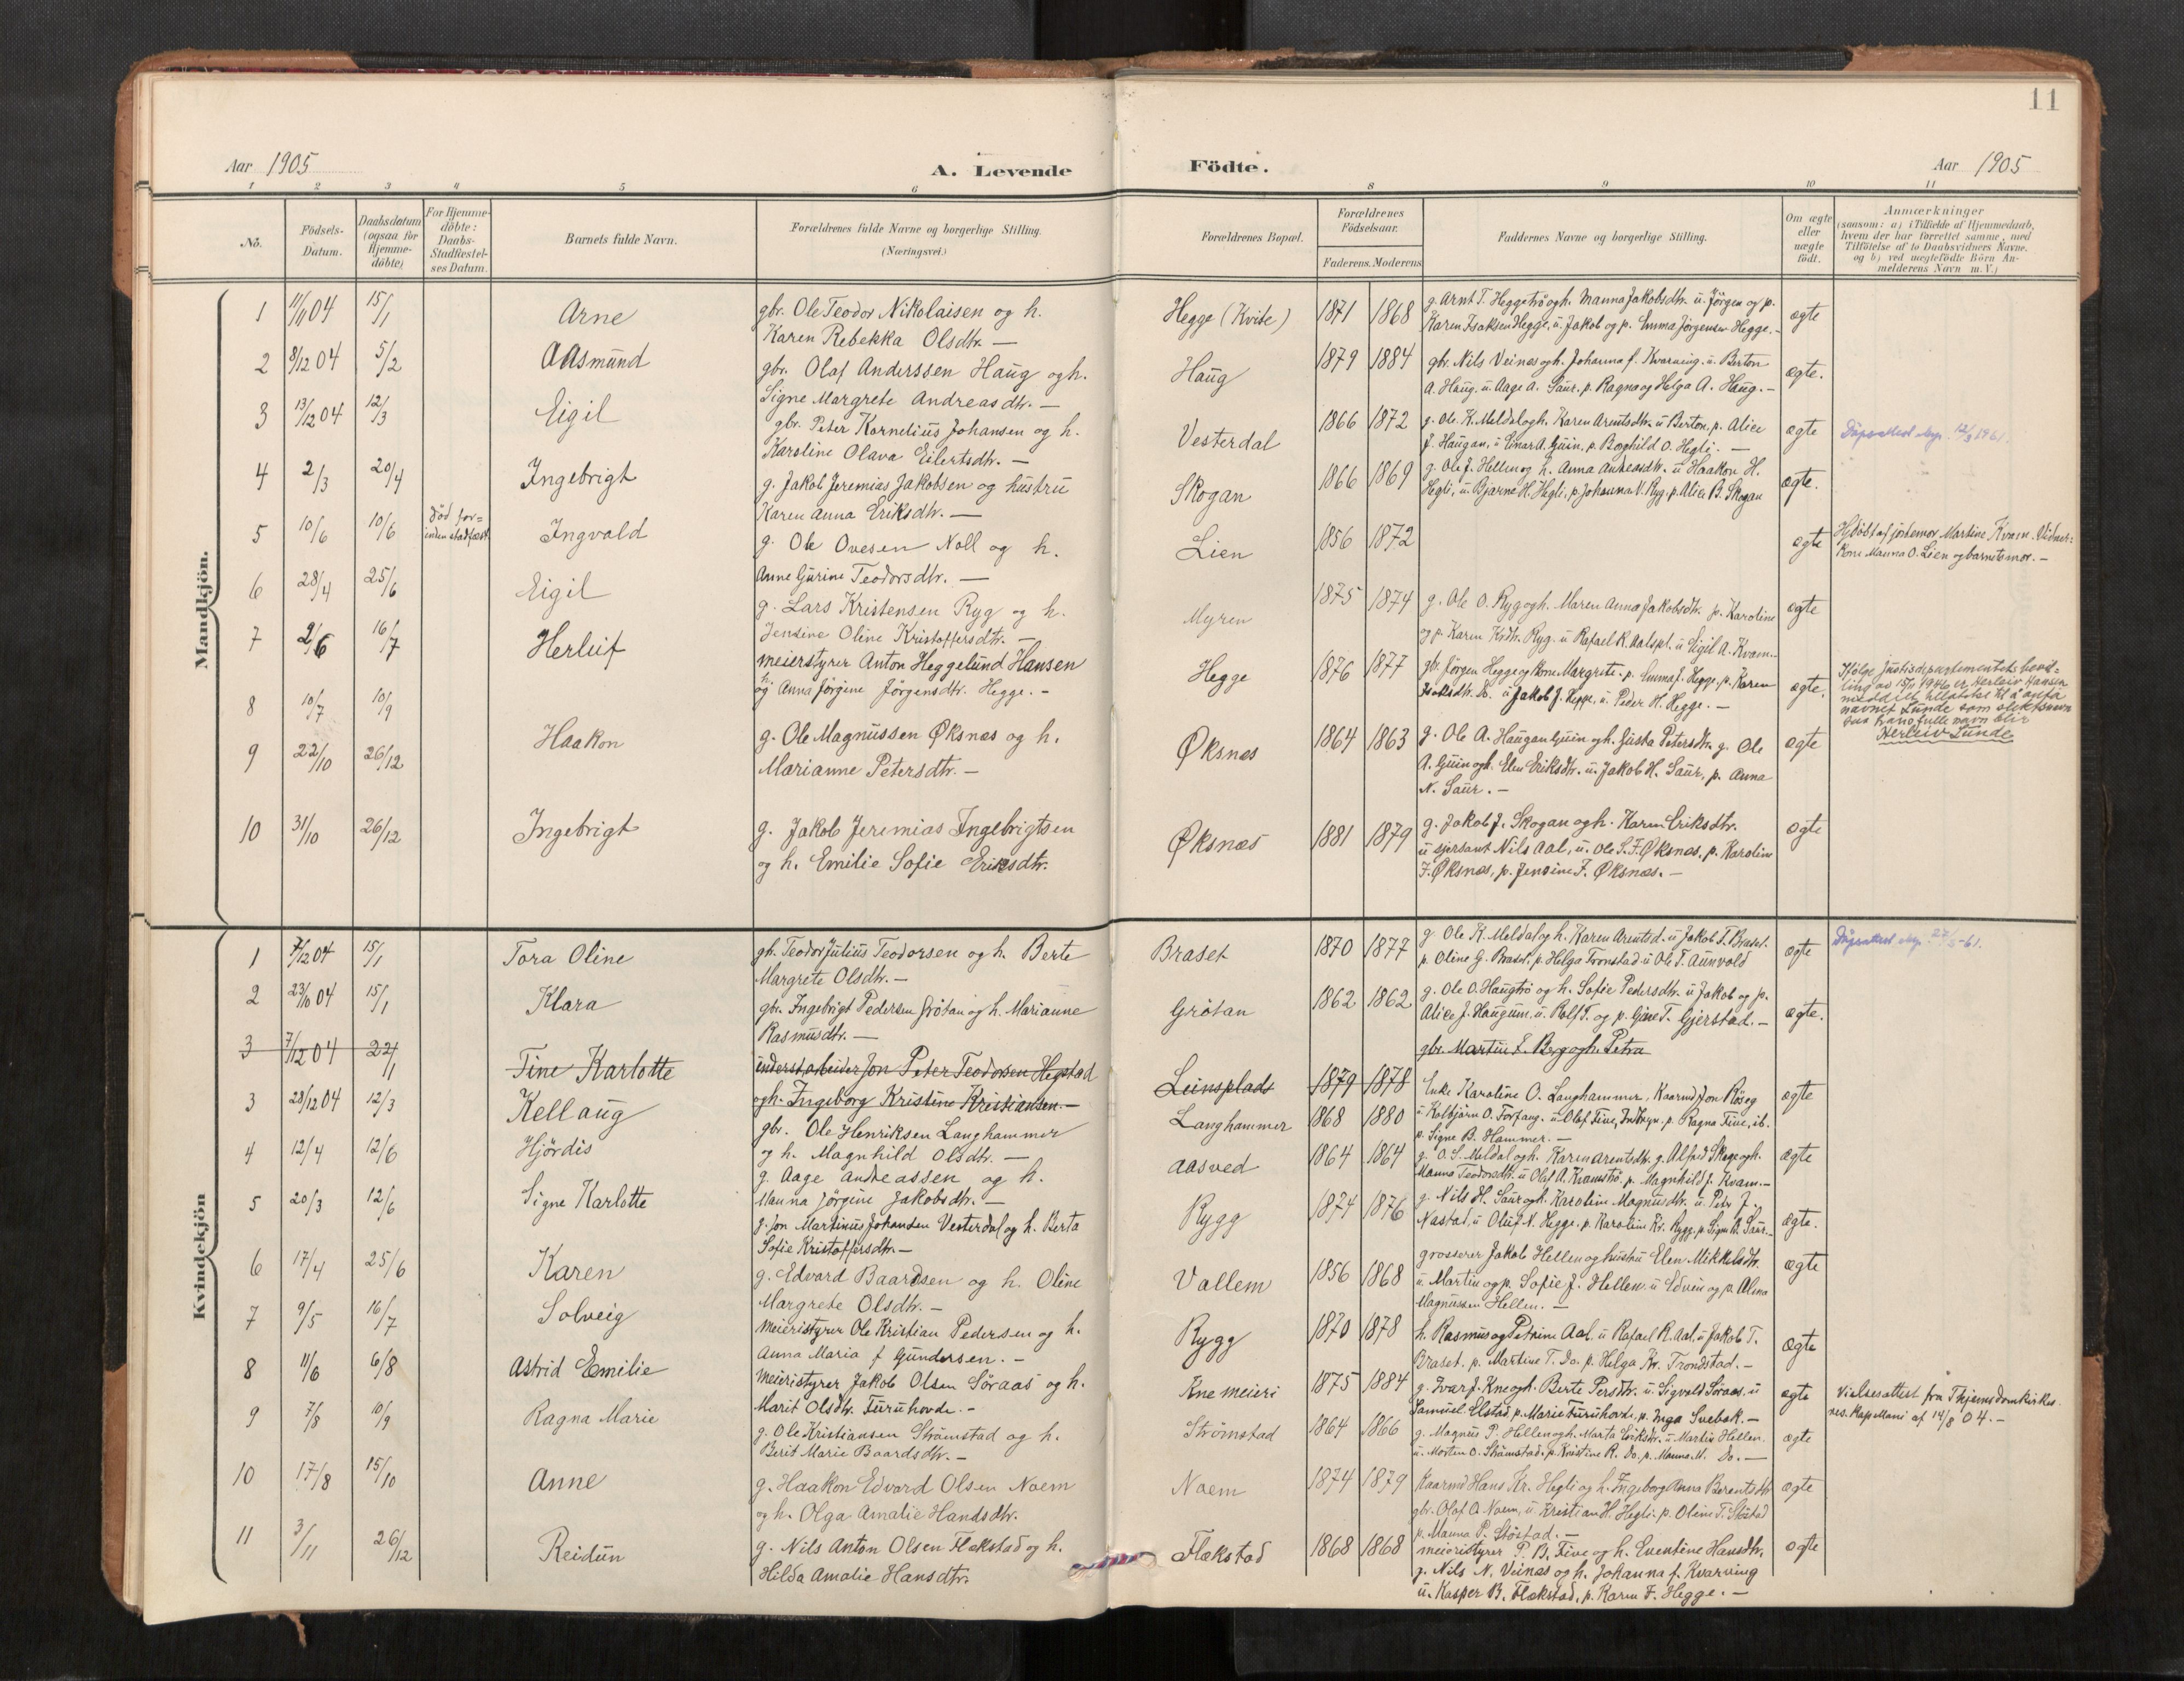 11
Aar 1905
A. Levende
Födte.
Aar 1905
1 2 3 4 5 6 8 9 10 11
No.
Födsels-Datum.
Daabsdatum (ogsaa for Hjemme-döbte)
For Hjemme-döbte: Daabs-Stadfæstel-ses Datum.
Barnets fulde Navn.
Forældrenes fulde Navne og borgerlige Stilling. (Næringsvei.)
Forældrenes Bopæl.
Forældrenes Födselsaar.
Faderens. Moderens.
Faddernes Navne og borgerlige Stilling.
Om ægte eller uægte födt.
Anmærkninger
(saasom: a) i Tilfælde af Hjemmedaab, hvem der har forrettet samme, med Tilföielse af to Daabsvidners Navne. og b) ved uægtefödte Börn An-melderens Navn m.V.)
Mandkjön.
1 11/11 04 15/1 Arne
gbr. Ole Teodor Nikolaisen og h.
Karen Rebekka Olsdtr. —
Hegge (Kvite) 1871 1868
g. Arnt T. Heggetrö og h. Manna Jakobsdtr. u. Jörgen og p.
Karen Isaksen Hegge, u. Jakob og p. Emma Jörgensen Hegge. -
ægte
2 8/12 04 5/2 Aasmund
gbr. Olaf Anderssen Haug og h.
Signe Margrete Andreasdtr. —
Haug 1879 1884
gbr. Nils Veines og h. Johanna f. Kvarving. u. Berton
A. Haug. u. Aage A. Saur. p. Ragna og Helga A. Haug. -
ægte.
3 13/12 04 12/3 Eigil
gbr. Peter Kornelius Johansen og h.
Karoline Olava Eilertsdtr. —
Vesterdal 1866 1872
g. Ole K. Meldal og h. Karen Arentsdtr. u. Berton, p. Alice
J. Haugan, u. Einar A. Guin, p. Borghild O. Hegli. —
ægte
1961.
4 2/3 20/4 Ingebrigt
g. Jakob Jeremias Jakobsen og hustru
Karen Anna Eriksdtr. —
Skogan 1866 1869
g. Ole J. Hellem og h. Anna Andreasdtr. u. Haakon H.
Hegli, u. Bjarne H. Hegli, p. Johanna V. Ryg, p. Alice B. Skogan
ægte.
5 10/6 10/6 död for=
inden stadfæst.
Ingvald
g. Ole Ovesen Noll og h.
Anne Gurine Teodorsdtr. —
Lien 1856 1872
ægte
Hjdöbt af jordemor Martine Kvam. Vidner:
Kone Manna O. Lien og barnets mor. -
6 28/4 25/6 Eigil
g. Lars Kristensen Ryg og h.
Jensine Oline Kristoffersdtr. —
Myren 1875 1874
g. Ole O. Ryg og h. Maren Anna Jakobsdtr. p. Karoline
og p. Karen Ksdtr. Ryg. u. Rafael R. u. Eigil A. Kvam.
ægte
7 2/6 16/7 Herluf
meieristyrer Anton Heggelund Hansen
og h. Anna Jörgine Jörgensdtr. Hegge. -
Hegge 1876 1877
gbr. Jörgen Hegge og kone Margrete. p. Emma J. Hegge. p. Karen
Isaksdtr. Do. u. Jakob J. Hegge, u. Peder H. Hegge. —
ægte.
Ifölge Justisdepartementets bevil=
ling av 15/11 1946 er Herleiv Hansen
meddelt tillatelse til å anta
navnet Lunde som slektsnavn
saa hans fulle navn blir
Herleiv Lunde
8 10/7 10/9 Haakon
g. Ole Magnussen Øksnes og h.
Marianne Petersdtr. —
Øksnes 1864 1863
g. Ole A. Haugan Guin og h. Gusta Petersdtr. g. Ole
A. Guin og h. Elen Eriksdtr. u. Jakob H. Saur, p. Anna
N. Saur. —
ægte
9 22/10 26/12
10 31/10 26/12 Ingebrigt
g. Jakob Jeremias Ingebrigtsen
og h. Emilie Sofie Eriksdtr.
Øksnes 1881 1879
g. Jakob J. Skogan og h. Karen Eriksdtr.
u. sersjant Nils Aal, u. Ole S. F. Øksnes, p. Karoline
F. Øksnes, p. Jensine F. Øksnes. —
ægte
Kvindekjön
1 7/12 04 15/1 Tora Oline
gb. Teodor Julius Teodorsen og h. Berte
Margrete Olsdtr. —
Braset 1870 1877
g. Ole K. Meldal og h. Karen Arentsd. u. Jakob T. Braset.
p. Oline G. Braset, p. Helga Tronstad u. Ole T. Aunvold
ægte
-61.
2 23/10 04 15/1 Klara
gbr. Ingebrigt Pedersen Grötan og h. Marianne
Rasmusdtr. —
Grötan 1862 1862
g. Ole O. Haugtrö og h. Sofie Pedersdtr. u. Jakob og p.
Alice J. Haugum. u. Rolf T. og p. Gine T. Gjerstad. —
ægte.
3 7/12 04 22/1 Tine Karlotte
inderst arbeider Jon Peter Teodorsen Hegstad
og h. Ingeborg Kristine Kristiansen. —
Leinsplads 1879 1878
gbr. Martin L. Berg og h. Petra
3 28/12 04 12/3 Kellaug
gbr. Ole Henriksen Langhammer
og h. Magnhild Olsdtr. —
Langhammer 1868 1880
Enke Karoline O. Langhammer, Kaarmd Jon Röseg
u. Kolbjörn O. Forfang. u. Olaf Five, p. Ragna Five, ib.
p. Signe B. Hammer. —
ægte
4 12/4 12/6 Hjördis
g. Aage Andreassen og h.
Manna Jörgine Jakobsdtr. —
Aasved 1864 1864
g. O. S. Meldal og h. Karen Arentsdtr. g. Alfred Skage og h.
Manna Teodorsdtr. u. Olaf A. Kvamstö. p. Magnhild J. Kvam. —
ægte
5 20/3 12/6 Signe Karlotte
g. Jon Martinus Johansen Vesterdal og h. Berta
Sofie Kristoffersdtr. —
Rygg 1874 1876
g. Nils H. Saur og h. Karoline Magnusdtr. u. Petr J.
Nastad, u. Oluf N. Hegge. p. Karoline Kr. Rygg, p. Signe A. Saur. -
ægte.
6 17/4 25/6 Karen
g. Edvard Baardsen og h. Oline
Margrete Olsdtr. —
Vollem 1856 1868
grosserer Jakob Hellem og hustru Elen Mikkelsdtr.
u. Martin og p. Sofie J. Hellem. u. Edvin og p. Alma
Magnussen Hellem. —
ægte
7 9/5 16/7 Solveig
meieristyrer Ole Kristian Pedersen og h.
Anna Maria f Gundersen. —
Rygg 1870 1878
h. Rasmus og Petrine Aal. u. Rafael R. Aal. u. Jakob T.
Braset. p. Martine T. Do. p. Helga Kr. Trondstad. —
ægte
8 11/6 6/8 Astrid Emilie
Meieristyrer Jakob Olsen Söraas og h.
Marit Olsdtr. Furuhovde. —
Kne meieri 1875 1884
g. Ivar J. Kne og h. Berte Persdtr. u. Sigvald Söraas. u.
Samuel Elstad, p. Marie Furuhovde, p. Inga Svebak. —
ægte
Vielsesattest fra Thjems domkirkes
res. Kapellani af 14/8 04. —
9 7/8 10/9 Ragna Marie
g. Ole Kristiansen Strömstad og h.
Berit Marie Baardsdtr. —
Strömstad 1864 1866
g. Magnus P. Hellem og h. Marta Eriksdtr. u. Martin Hellem.
u. Morten O. Strömstad. p. Kristine R. Do. p. Manna M. Do. —
ægte
10 17/8 15/10 Anne
g. Haakon Edvard Olsen Noem
og h. Olga Amalie Hansdtr.
Noem 1874 1879
Kaarmd Hans Kr. Hegli og h. Ingeborg Anna Berentsdtr
gbr. Olaf A. Noem, u. Kristian H. Hegli. p. Oline T. Stöstad
p. Manna P. Stöstad. —
ægte
11 3/11 26/12 Reidun
g. Nils Anton Olsen Flekstad og h.
Hilda Amalie Hansdtr.
Flekstad 1868 1868
meieristyrer P. B. Five og h. Eventine Hansdtr.
g. Nils N. Veines og h. Johanna f. Kvarving
u. Kasper B. Flekstad, p. Karen F. Hegge. —
ægte